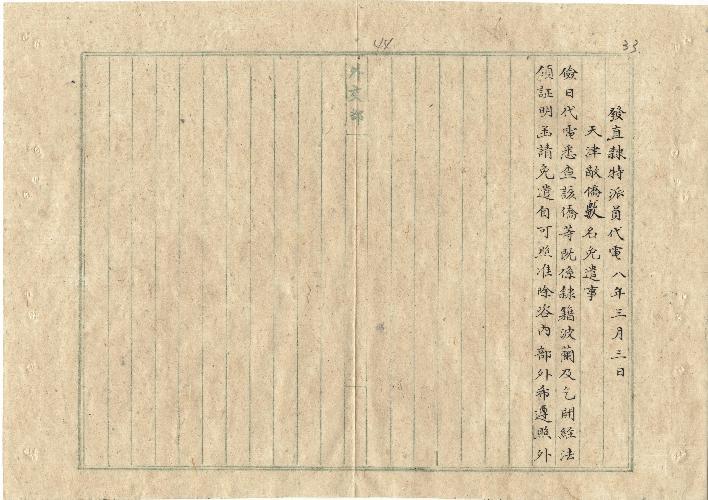 33
發直隸特派員代電八年三月三日
天津敵僑數名免遣事
儉日代電悉查該僑等既係隸籍波蘭及乞開經法
領証明並請免遣自可照准除咨內部外希遵照外
44
外交部